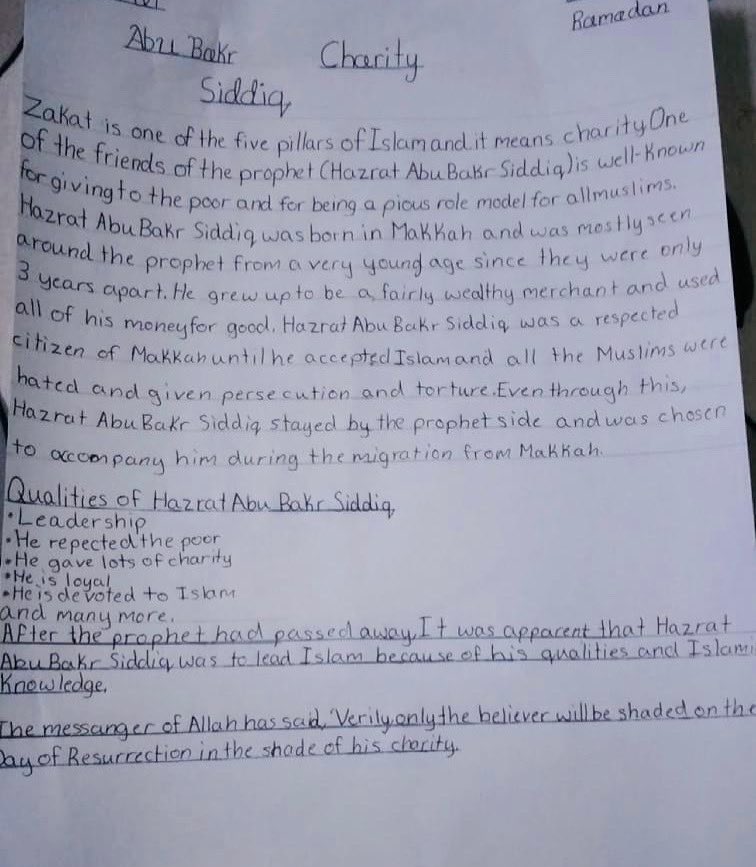 Ramadan
Abu Bakr Charity
Siddiq
Zakat is one of the five pillars of Islam and it means charity. One
of the friends of the prophet (Hazrat Abu Bakr Siddiq) is well-known
for giving to the poor and for being a pious role model for all muslims.
Hazrat Abu Bakr Siddiq was born in Makkah and was mostly seen
around the prophet from a very young age since they were only
3 years apart. He grew up to be a fairly wealthy merchant and used
all of his money for good. Hazrat Abu Bakr Siddiq was a respected
citizen of Makkah until he accepted Islam and all the Muslims were
hated and given persecution and torture. Even through this,
Hazrat Abu Bakr Siddiq stayed by the prophet side and was chosen
to accompany him during the migration from Makkah.
Qualities of Hazrat Abu Bakr Siddiq
•Leadership
•He repected the poor
•He gave lots of charity
•He is loyal
•He is devoted to Islam
and many more.
After the prophet had passed away, It was apparent that Hazrat
Abu Bakr Siddiq was to lead Islam because of his qualities and Islami
Knowledge.
The messanger of Allah has said, 'Verily, only the believer will be shaded on the
Day of Resurrection in the shade of his charity.